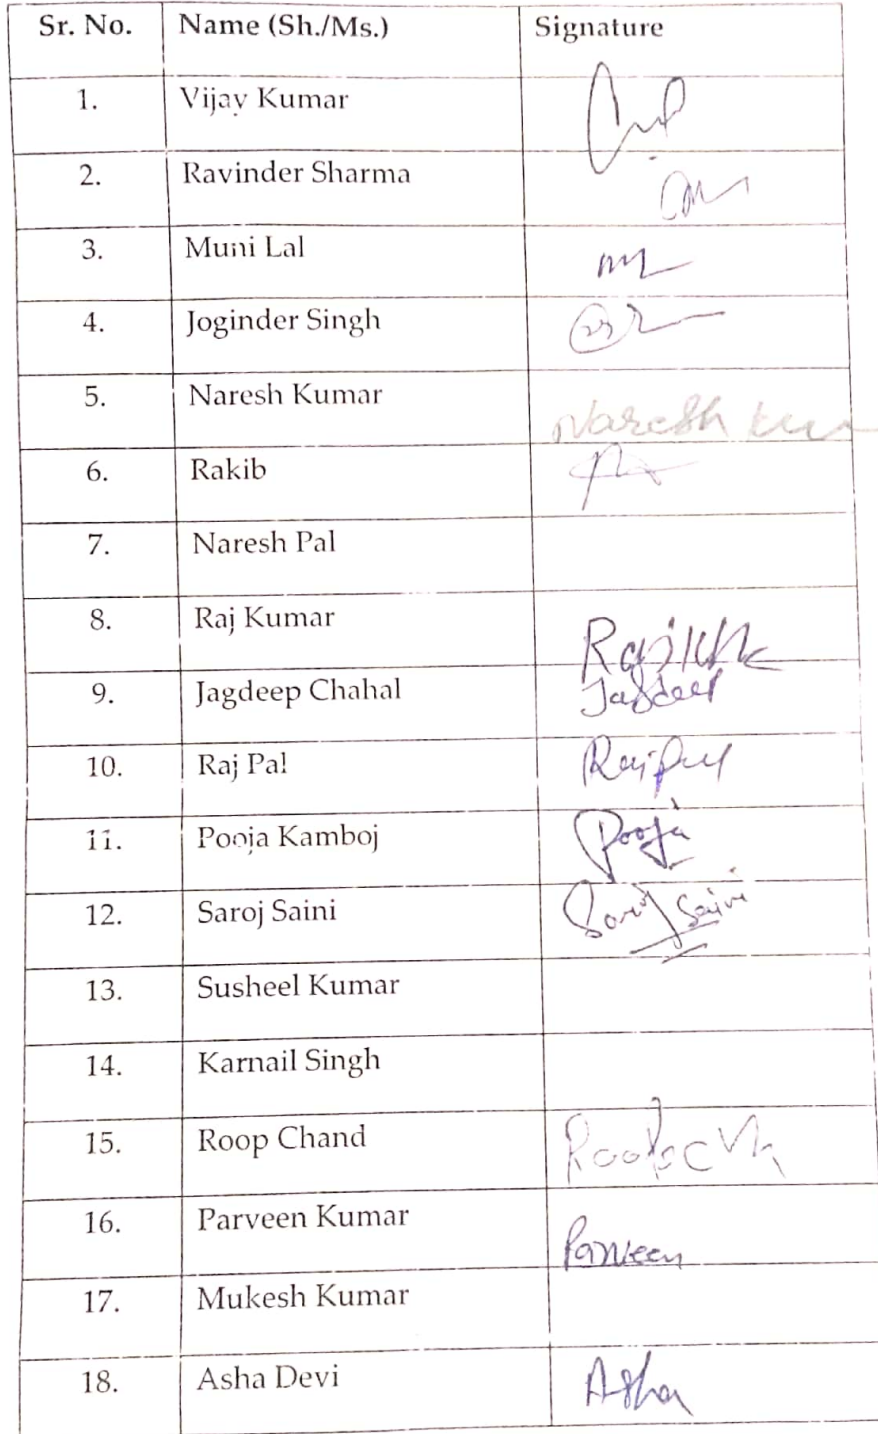 Sr. No. Name (Sh./Ms.) Signature
1. Vijay Kumar
2. Ravinder Sharma
3. Muni Lal
4. Joginder Singh
5. Naresh Kumar Naresh
6. Rakib
7. Naresh Pal
8. Raj Kumar
9. Jagdeep Chahal Jagdeep
10. Raj Pal Rajpal
11. Pooja Kamboj Pooja
12. Saroj Saini Saroj Saini
13. Susheel Kumar
14. Karnail Singh
15. Roop Chand
16. Parveen Kumar Parveen
17. Mukesh Kumar
18. Asha Devi Asha